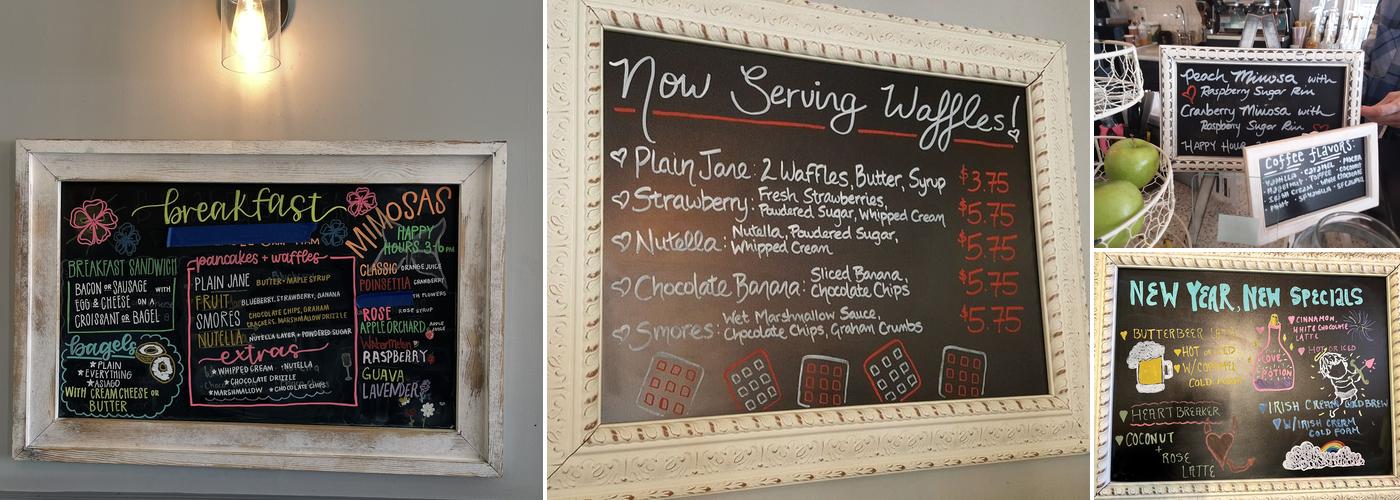 breakfast
MIMOSAS
HAPPY
HOURS 3-6PM
BREAKFAST SANDWICH
BACON OR SAUSAGE WITH
EGG & CHEESE ON A
CROISSANT OR BAGEL
bagels
*PLAIN
*EVERYTHING
*ASIAGO
WITH CREAM CHEESE OR
BUTTER
pancakes + waffles
PLAIN JANE BUTTER + MAPLE SYRUP
FRUIT BLUEBERRY, STRAWBERRY, BANANA
SMORES CHOCOLATE CHIPS, GRAHAM
CRACKERS, MARSHMALLOW DRIZZLE
NUTELLA NUTELLA LAYER + POWDERED SUGAR
extras
*WHIPPED CREAM *NUTELLA
*CHOCOLATE DRIZZLE
*MARSHMALLOW *CHOCOLATE CHIPS
CLASSIC ORANGE JUICE
POINSETTIA CRANBERRY
FLOWERS
ROSE ROSE SYRUP
APPLE ORCHARD APPLE
JUICE
Watermelon
RASPBERRY
GUAVA
LAVENDER
Now Serving Waffles!
Plain Jane: 2 Waffles, Butter, Syrup $3.75
Strawberry: Fresh Strawberries,
Powdered Sugar, Whipped Cream $5.75
Nutella: Nutella, Powdered Sugar,
Whipped Cream $5.75
Chocolate Banana: Sliced Banana,
Chocolate Chips $5.75
Smores: Wet Marshmallow Sauce,
Chocolate Chips, Graham Crumbs $5.75
Peach Mimosa with
Raspberry Sugar Rim
Cranberry Mimosa with
Raspberry Sugar Rim
HAPPY HOUR
Coffee flavors:
VANILLA • CARAMEL • MOCHA
HAZELNUT • TOFFEE • COCONUT
IRISH CREAM • WHITE CHOCOLATE
NEW YEAR, NEW SPECIALS
BUTTERBEER LATTE
HOT OR ICED
W/ CARAMEL
COLD FOAM
LOVE
POTION
CINNAMON,
WHITE CHOCOLATE
LATTE
HOT OR ICED
HEARTBREAKER
COCONUT
+
ROSE
LATTE
IRISH CREAM COLD BREW
W/ IRISH CREAM
COLD FOAM